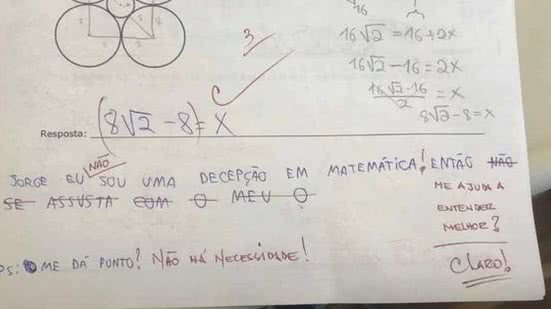 16
3
16√2 = 16 + 2x
16√2 - 16 = 2x
16√2 - 16 / 2 = x
8√2 - 8 = x
C
Resposta: (8√2 - 8) = x
NÃO
JORGE EU SOU UMA DECEPÇÃO EM MATEMÁTICA! ENTÃO NÃO
SE ASSUSTA COM O MEU O
ME AJUDA A
ENTENDER
MELHOR?
CLARO!
PS: ME DÁ PONTO! NÃO HÁ NECESSIDADE!